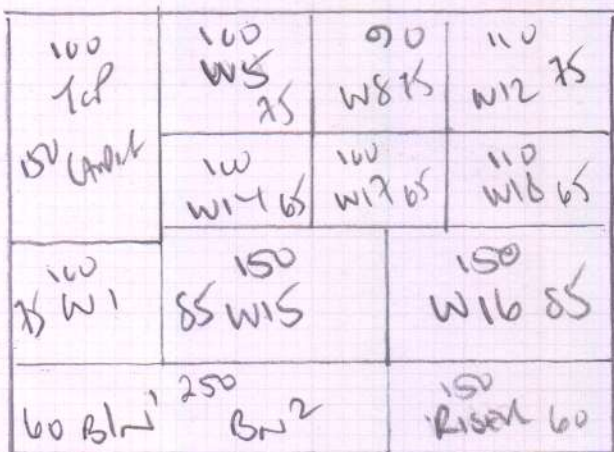 100
TOP
150 CANDLE
100
W5
75
90
W8 75
110
W12 75
100
W14 65
100
W17 65
110
W18 65
100
75 W1
150
85 W15
150
W16 85
250
60 BIN¹
BN²
150
RISER 60